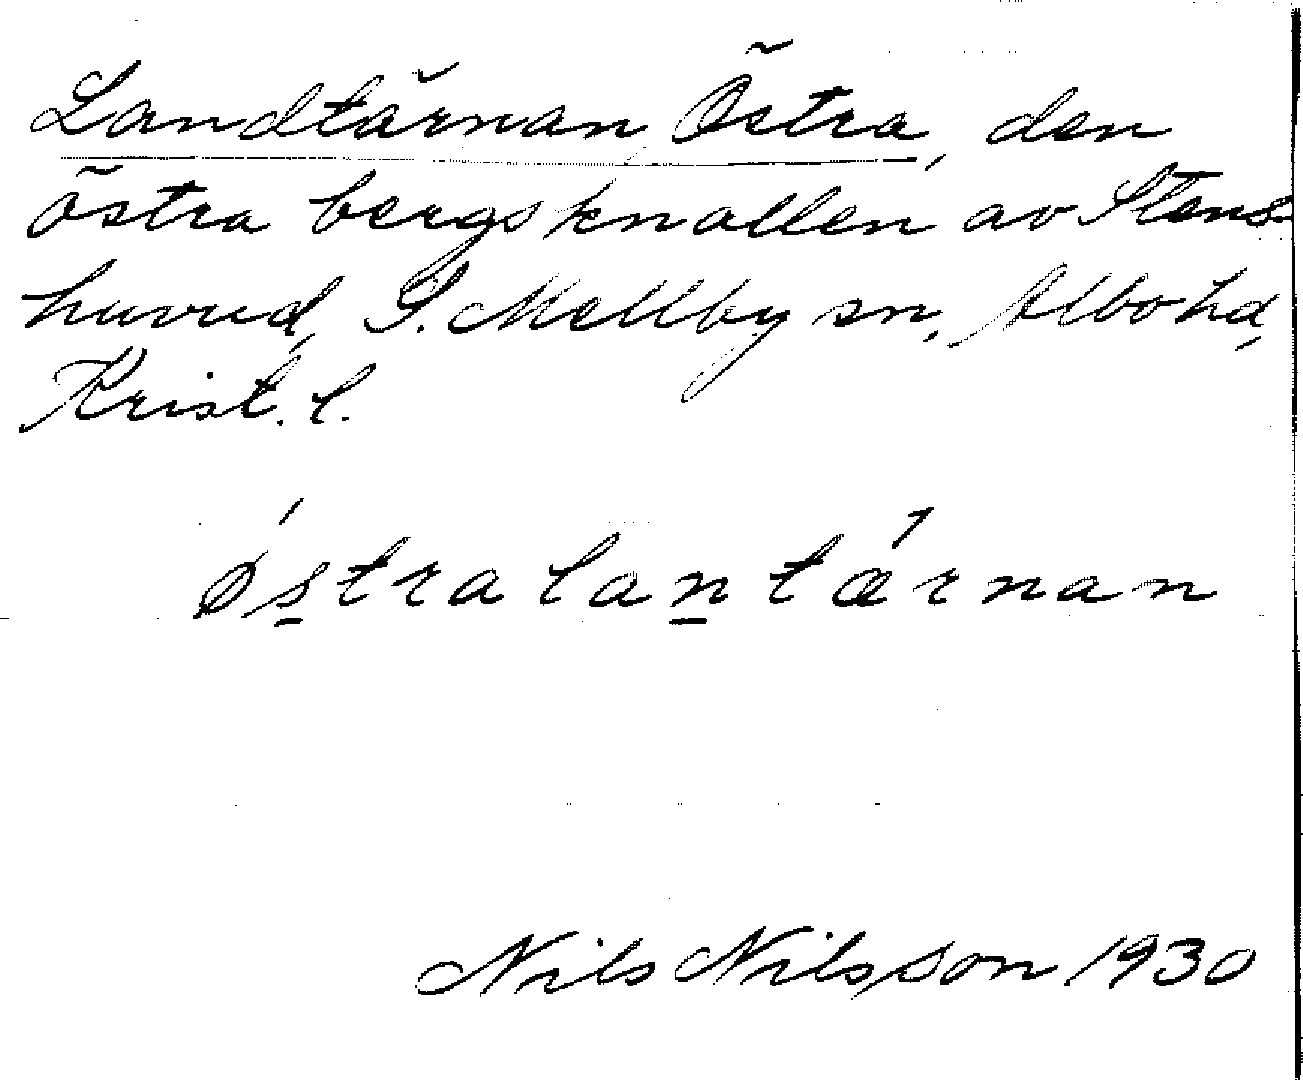 Landtärnan, Östra, den
östra bergsknallen av Stens-
huvud, S. Mellby sn, Albo hd,
Krist. l.
ǿstra lantǽrnan
Nils Nilsson 1930